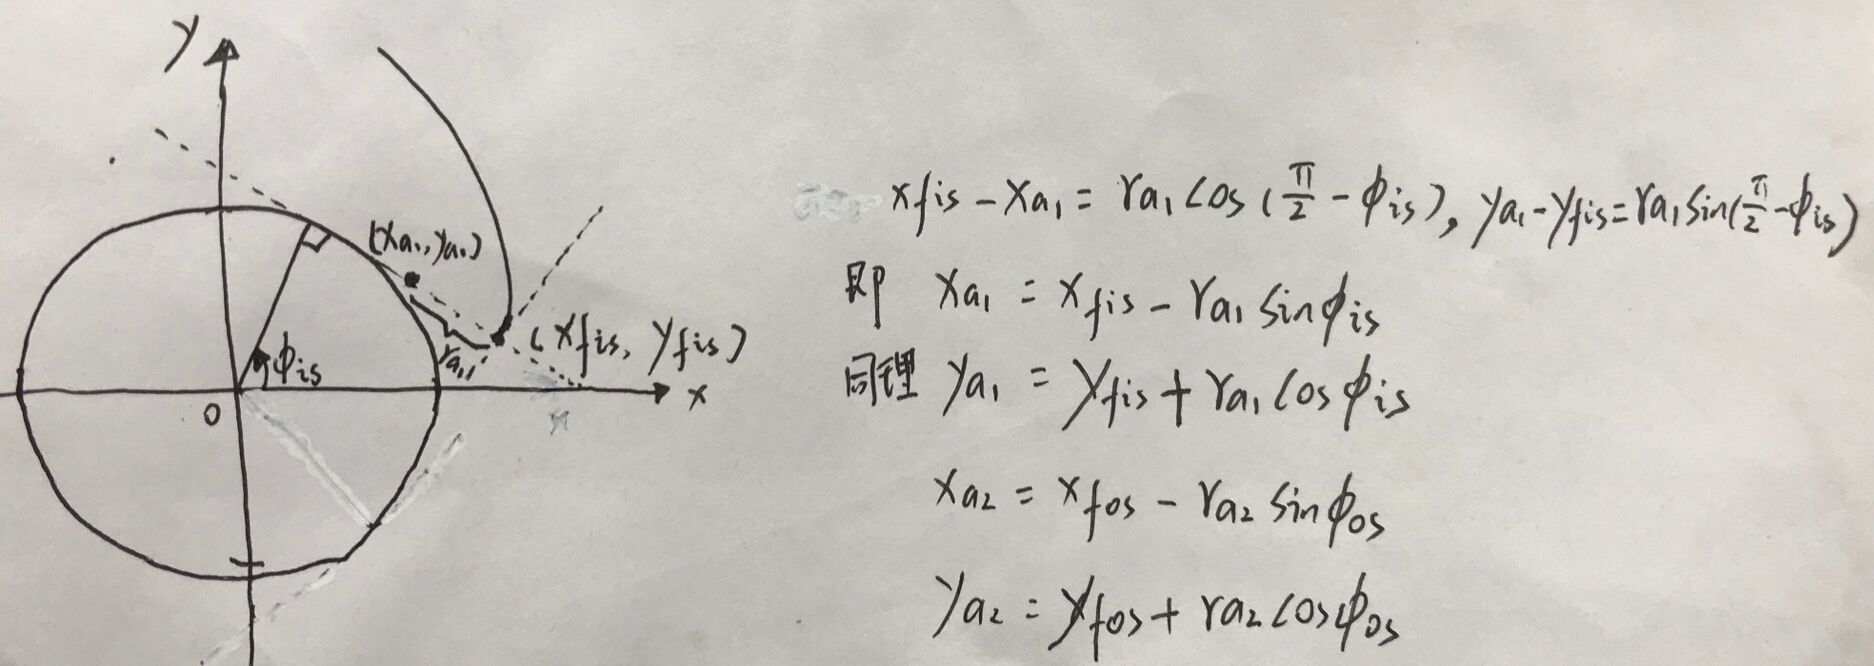 y
(xa₁, ya₁)
(xfis, yfis)
ra₁
ϕis
O
x
xfis - xa₁ = ra₁ cos(π/2 - ϕis), ya₁ - yfis = ra₁ sin(π/2 - ϕis)
即 xa₁ = xfis - ra₁ sinϕis
同理 ya₁ = yfis + ra₁ cosϕis
xa₂ = xfos - ra₂ sinϕos
ya₂ = yfos + ra₂ cosϕos